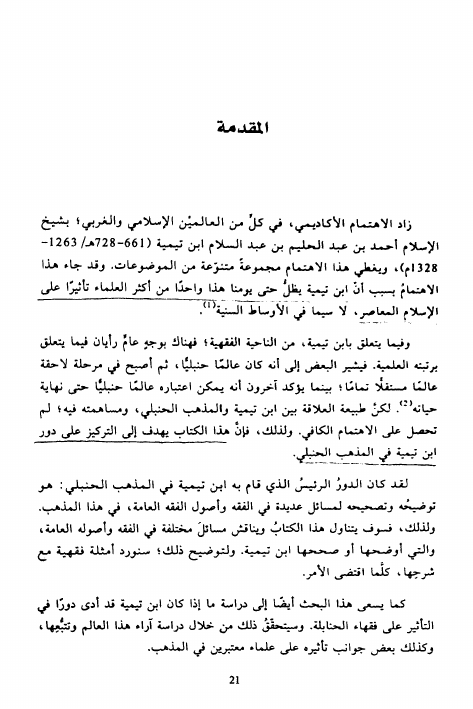 المقدمة
زاد الاهتمام الأكاديمي، في كلٍّ من العالميْن الإسلامي والغربي؛ بشيخ
الإسلام أحمد بن عبد الحليم بن عبد السلام ابن تيمية (661-728هـ/ 1263-
1328م)، ويغطي هذا الاهتمام مجموعةً متنوّعة من الموضوعات. وقد جاء هذا
الاهتمامُ بسبب أنّ ابن تيمية يظلُّ حتى يومنا هذا واحدًا من أكثر العلماء تأثيرًا على
الإسلام المعاصر، لا سيما في الأوساط السنية(1).
وفيما يتعلق بابن تيمية، من الناحية الفقهية؛ فهناك بوجهٍ عامٍّ رأيان فيما يتعلق
برتبته العلمية. فيشير البعض إلى أنه كان عالمًا حنبليًّا، ثم أصبح في مرحلة لاحقة
عالمًا مستقلًّا تمامًا؛ بينما يؤكد آخرون أنه يمكن اعتباره عالمًا حنبليًّا حتى نهاية
حياته(2). لكنّ طبيعة العلاقة بين ابن تيمية والمذهب الحنبلي، ومساهمته فيه؛ لم
تحصل على الاهتمام الكافي. ولذلك، فإنّ هذا الكتاب يهدف إلى التركيز على دور
ابن تيمية في المذهب الحنبلي.
لقد كان الدورُ الرئيسُ الذي قام به ابن تيمية في المذهب الحنبلي: هو
توضيحُه وتصحيحه لمسائل عديدة في الفقه وأصول الفقه العامة، في هذا المذهب.
ولذلك، فسوف يتناول هذا الكتابُ ويناقش مسائلَ مختلفة في الفقه وأصوله العامة،
والتي أوضحها أو صححها ابن تيمية. ولتوضيح ذلك؛ سنورد أمثلة فقهية مع
شرحها، كلّما اقتضى الأمر.
كما يسعى هذا البحث أيضًا إلى دراسة ما إذا كان ابن تيمية قد أدى دورًا في
التأثير على فقهاء الحنابلة. وسيتحقّقُ ذلك من خلال دراسة آراء هذا العالم وتتبُّعها،
وكذلك بعض جوانب تأثيره على علماء معتبرين في المذهب.
21